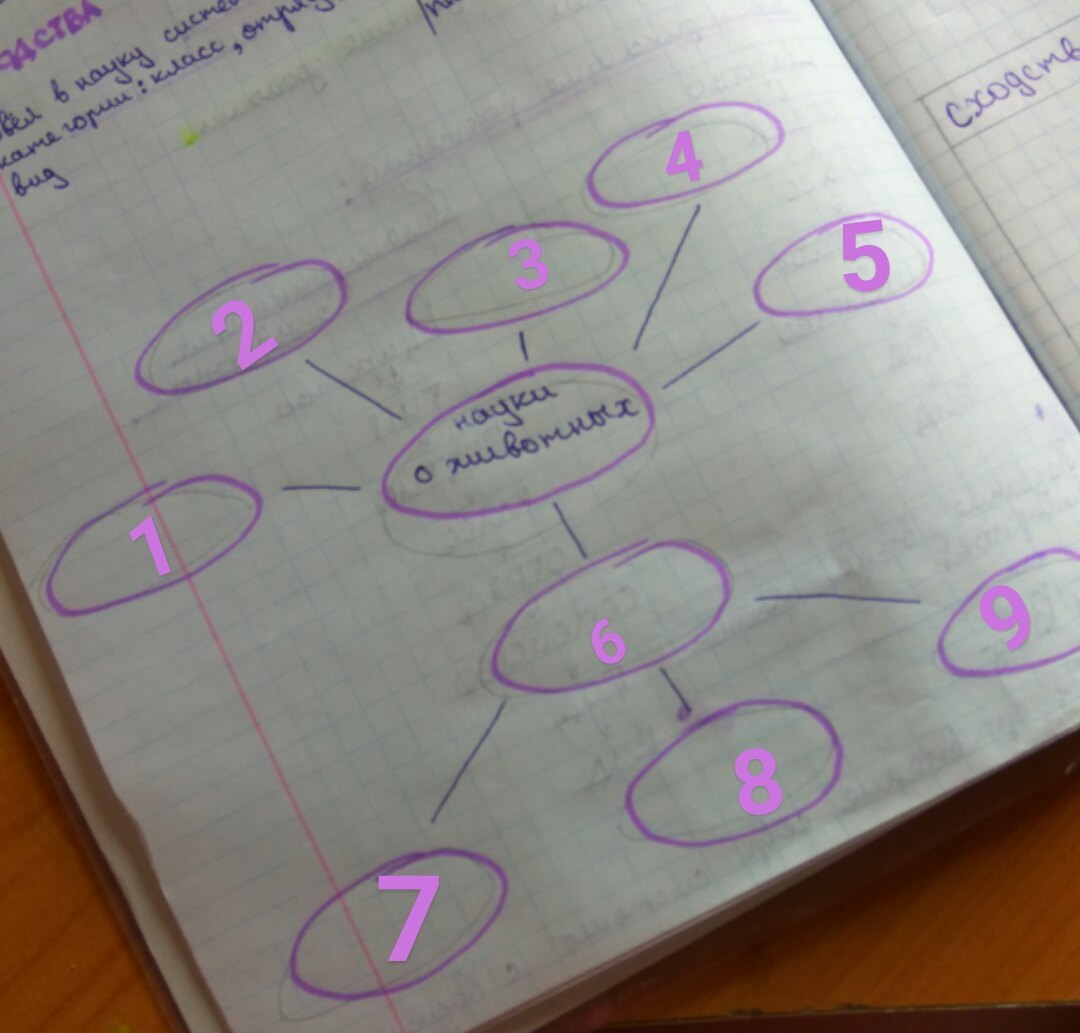 ДСТВА
в науку
категории: класс, отряд
вид
сходств
4
3
5
2
науки
о животных
1
6
9
8
7